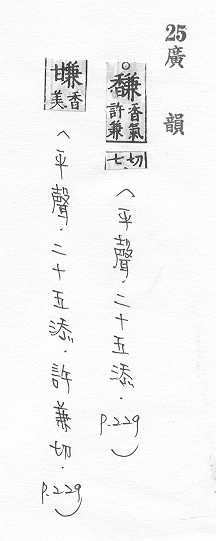 25 廣韻
○馦香氣許兼切七（平聲．二十五添．p.229）
香美（平聲．二十五添．許兼切．p.229）